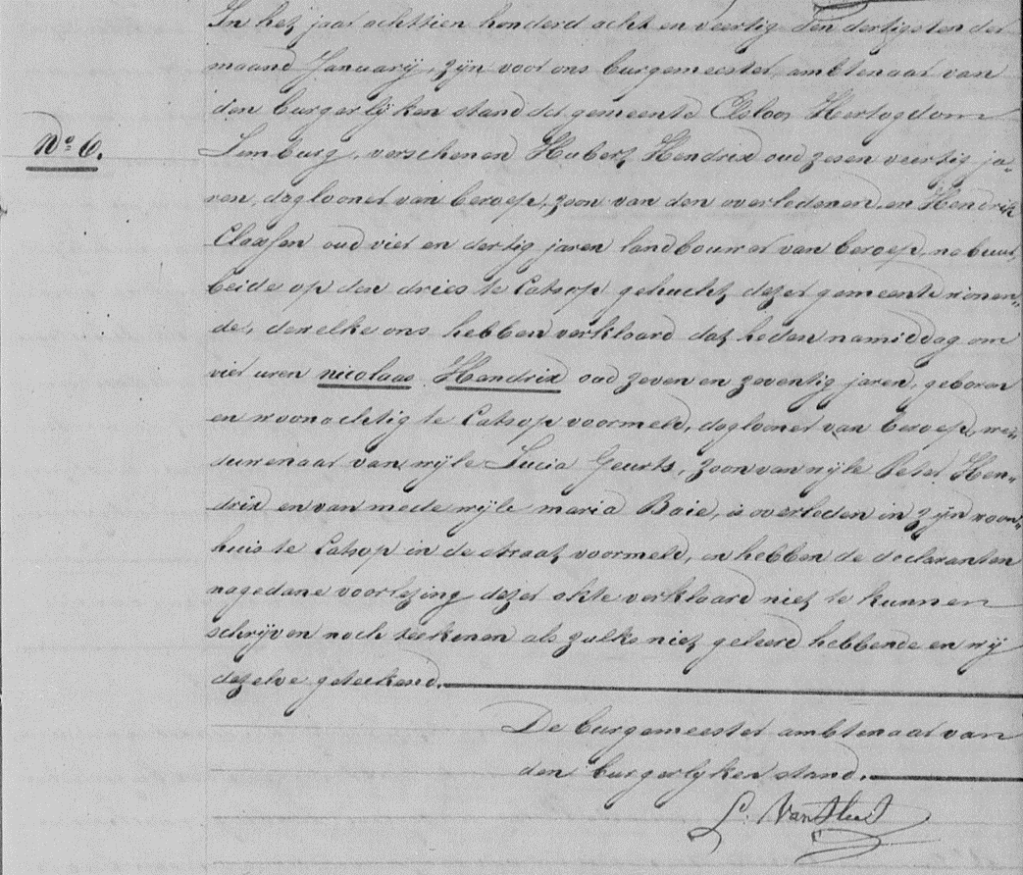 In het jaar achttien honderd acht en veertig den dertigsten der
maand January, zijn voor ons burgemeester, ambtenaar van
den burgerlijken stand der gemeente Elsloo Hertogdom
No 6.
Limburg, verschenen Hubert Hendrix oud zesen veertig ja-
ren, daglooner van beroep, zoon van den overledenen, en Hendrik
Claessen oud vier en dertig jaren landbouwer van beroep, nabuur,
beide op den dries te Catsop gehucht dezer gemeente wonen-
de, dewelke ons hebben verklaard dat heden namiddag om
vier uren nicolaas Hendrix oud zeven en zeventig jaren, geboren
en woonachtig te Catsop voormeld, daglooner van beroep, we-
duwenaar van wijle Lucia Geurts, zoon van wijle Peter Hen-
drix en van mede wijle maria Baie, is overleden in zijn woon-
huis te Catsop in de straat voormeld, en hebben de declaranten
nagedane voorlezing dezer akte verklaard niet te kunnen
schrijven noch teekenen als zulks niet geleerd hebbende en wij
dezelve geteekend.
De burgemeester ambtenaar van
den burgerlyken stand.
L. Van